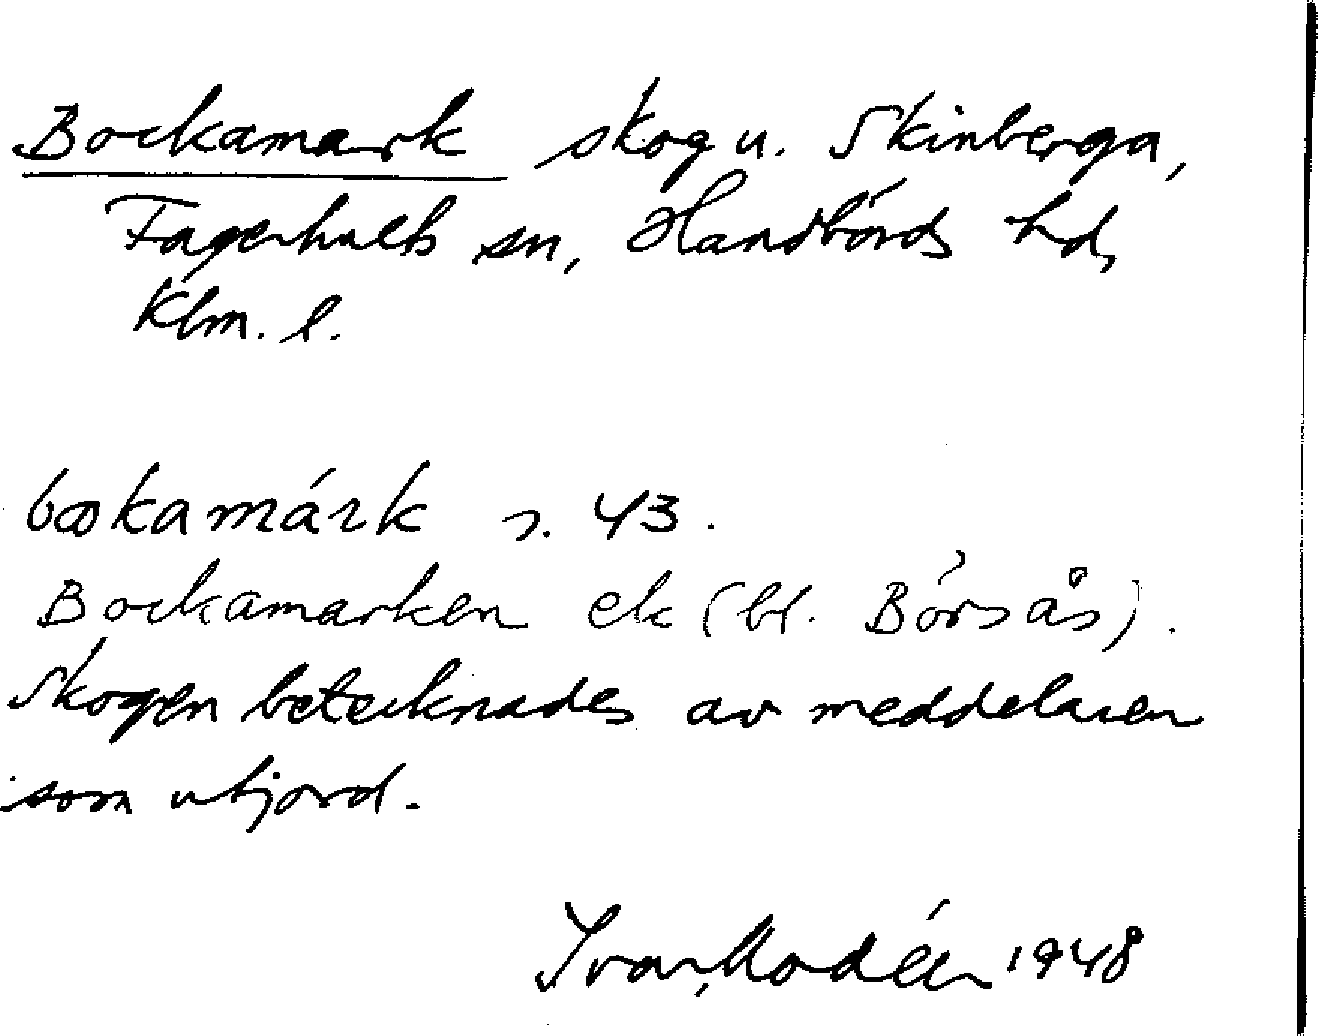 Bockamark skog u. Skinberga,
Fagerhults sn, Handbörds hd,
Klm. l.
bωkamárk s. 43.
Bockamarken ek (bl. Börsås).
Skogen betecknades av meddelaren
som utjord.
Ivar Modéer 1948